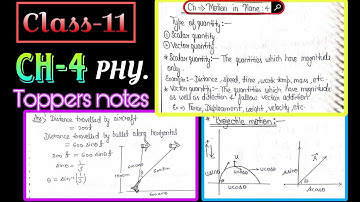 Class-11
CH-4 PHY.
Toppers notes
Ch-⇒ Motion in Plane :4
Type of quantity:-
① Scalar quantity
② Vector quantity
Scalar quantity:- The quantities which have magnitude
only.
Example:- Distance, speed, time, work, temp, mass, etc.
Vector quantity:- The quantities which have magnitude
as well as direction & follow vector addition.
Force, Displacement, weight, velocity, etc
Distance travelled by aircraft
= 200t
Distance travelled by bullet along horizontal
= 600 sinθ t
200 t = 600 sinθ t
sinθ = 1/3
θ = sin⁻¹(1/3)
600 sinθ
Projectile motion:-
u sinθ
u
u cosθ
u cosθ
A sinθ
A
A cosθ